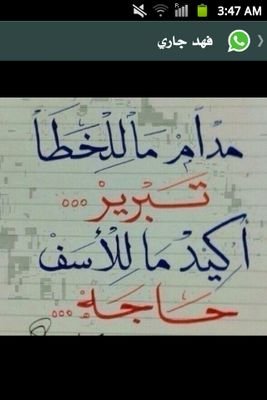 3:47 AM
فهد جاري
مدامْ مَا لِلْخَطَأ
تَبْرِيْر...
أكيدْ مَا لِلأسَفْ
حَاجَهْ...